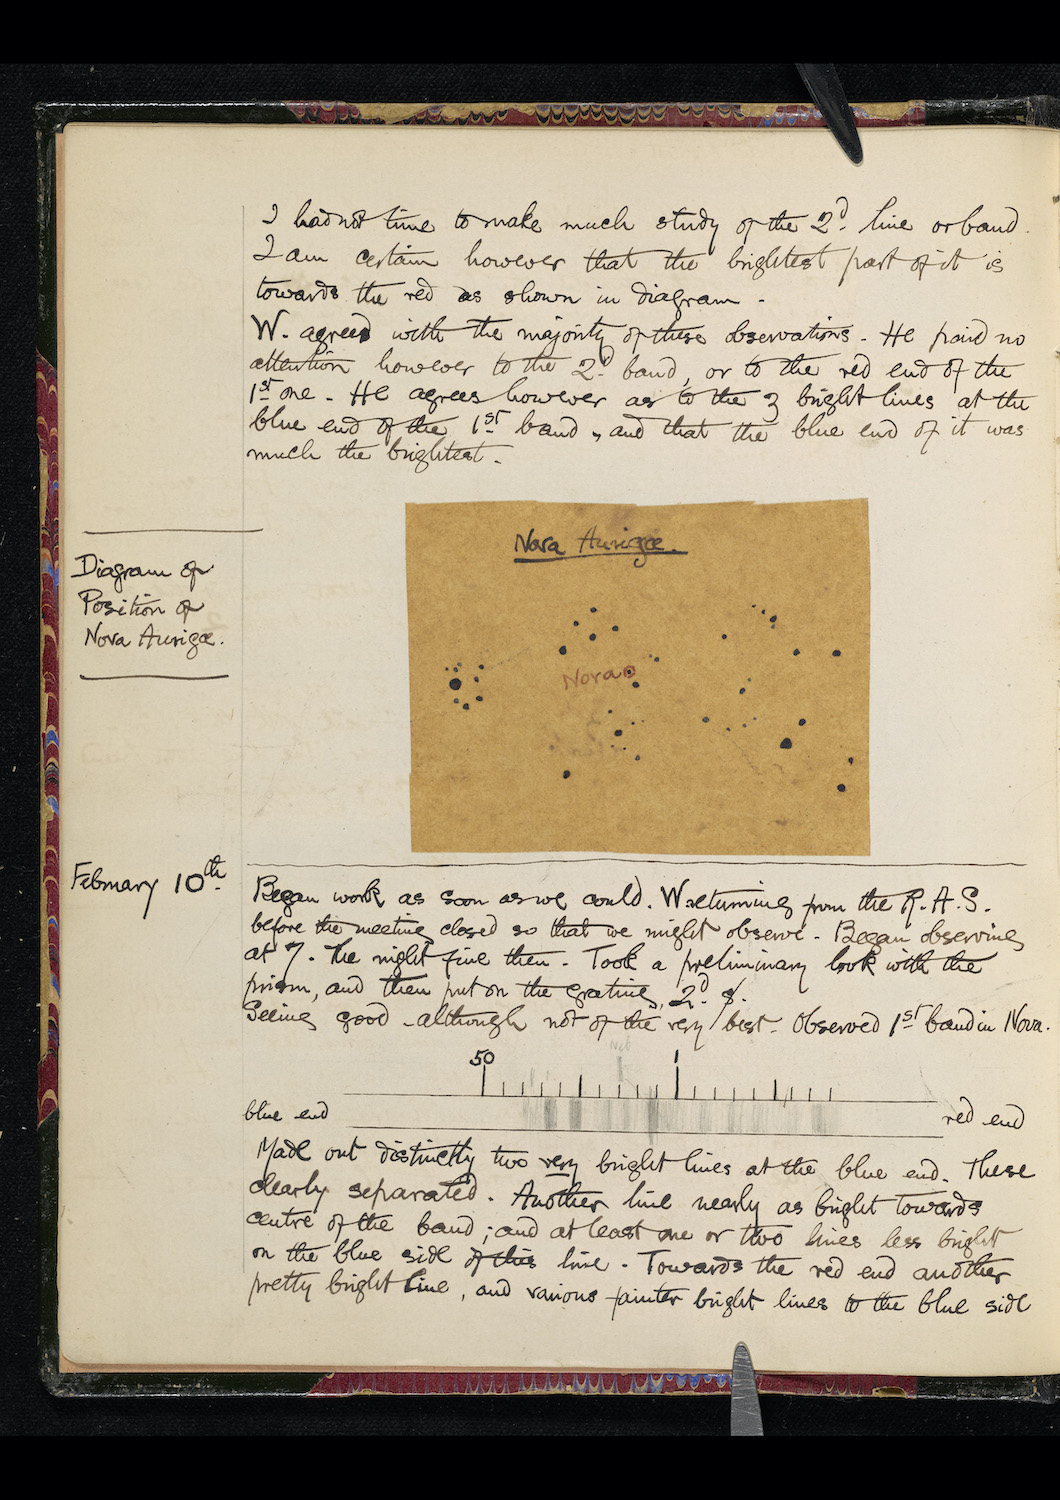 I had not time to make much study of the 2d. line or band.
I am certain however that the brightest part of it is
towards the red as shown in diagram.
W. agreed with the majority of these observations. He paid no
attention however to the 2d. band, or to the red end of the
1st one. He agrees however as to the 3 bright lines at the
blue end of the 1st band, and that the blue end of it was
much the brightest.
Nova Aurigæ.
Diagram of
Position of
Nova Aurigæ.
Nova
February 10th.
Began work as soon as we could. W. returning from the R.A.S.
before the meeting closed so that we might observe. Began observing
at 7. The night fine then. Took a preliminary look with the
prism, and then put on the grating, 2d. S.
Seeing good although not of the very best. Observed 1st band in Nova.
50
1
blue end
red end
Made out distinctly two very bright lines at the blue end. These
clearly separated. Another line nearly as bright towards
centre of the band; and at least one or two lines less bright
on the blue side of this line. Towards the red end another
pretty bright line, and various fainter bright lines to the blue side